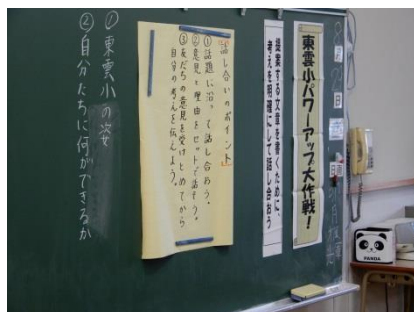 東雲小パワーアップ大作戦！
提案する文章を書くために、
考えを明確にして話し合おう
話し合いのポイント
①話題に沿って話し合おう。
②意見と理由をセットで話そう。
③友だちの意見を受けとめてから
自分の考えを伝えよう。
①東雲小の姿
②自分たちに何ができるか
PANDA